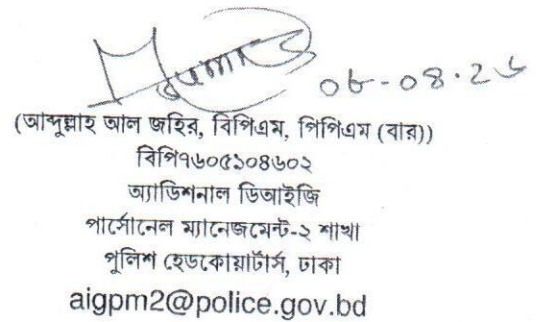 ০৮-০৪.২৬
(আব্দুল্লাহ আল জহির, বিপিএম, পিপিএম (বার))
বিপি৭৬০৫১০৪৬০২
অ্যাডিশনাল ডিআইজি
পার্সোনেল ম্যানেজমেন্ট-২ শাখা
পুলিশ হেডকোয়ার্টার্স, ঢাকা
aigpm2@police.gov.bd